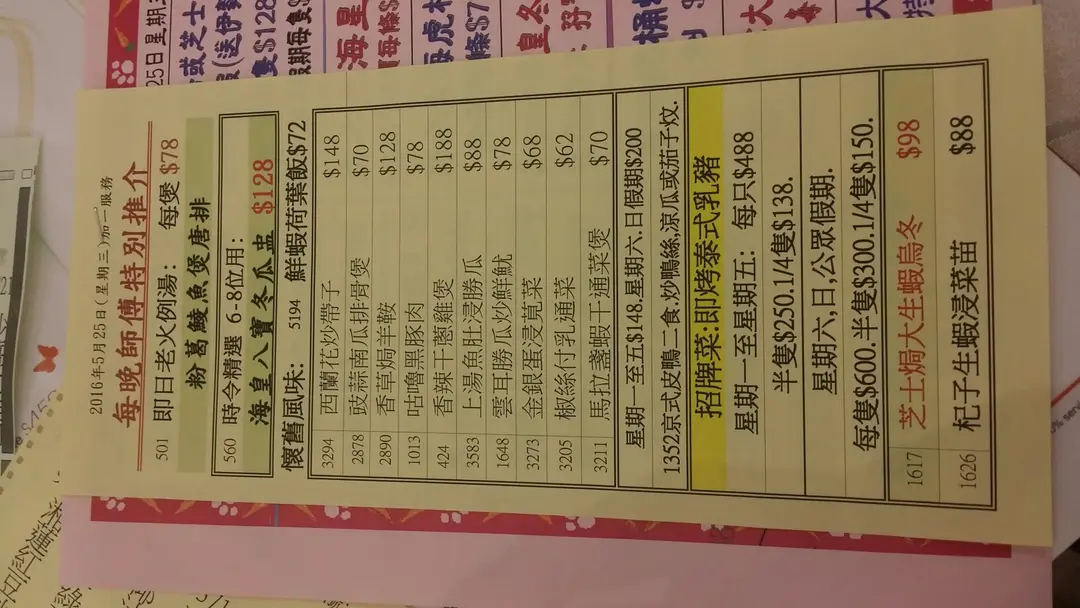 2016年5月25日(星期三)加一服務
每晚師傅特別推介
501 即日老火例湯: 每煲$78
粉葛鯪魚煲唐排
560 時令精選 6-8位用:
海皇八寶冬瓜盅 $128
懷舊風味: 5194 鮮蝦荷葉飯$72
3294 西蘭花炒帶子 $148
2878 豉蒜南瓜排骨煲 $70
2890 香草焗羊鞍 $128
1013 咕嚕黑豚肉 $78
424 香辣干蔥雞煲 $188
3583 上湯魚肚浸勝瓜 $88
1648 雲耳勝瓜炒鮮魷 $78
3273 金銀蛋浸莧菜 $68
3205 椒絲付乳通菜 $62
3211 馬拉盞蝦干通菜煲 $70
星期一至五$148.星期六.日假期$200
1352京式皮鴨二食.炒鴨絲,涼瓜或茄子炆.
招牌菜:即烤泰式乳豬
星期一至星期五: 每只$488
半隻$250.1/4隻$138.
星期六,日,公眾假期.
每隻$600.半隻$300.1/4隻$150.
1617 芝士焗大生蝦烏冬 $98
1626 杞子生蝦浸菜苗 $88